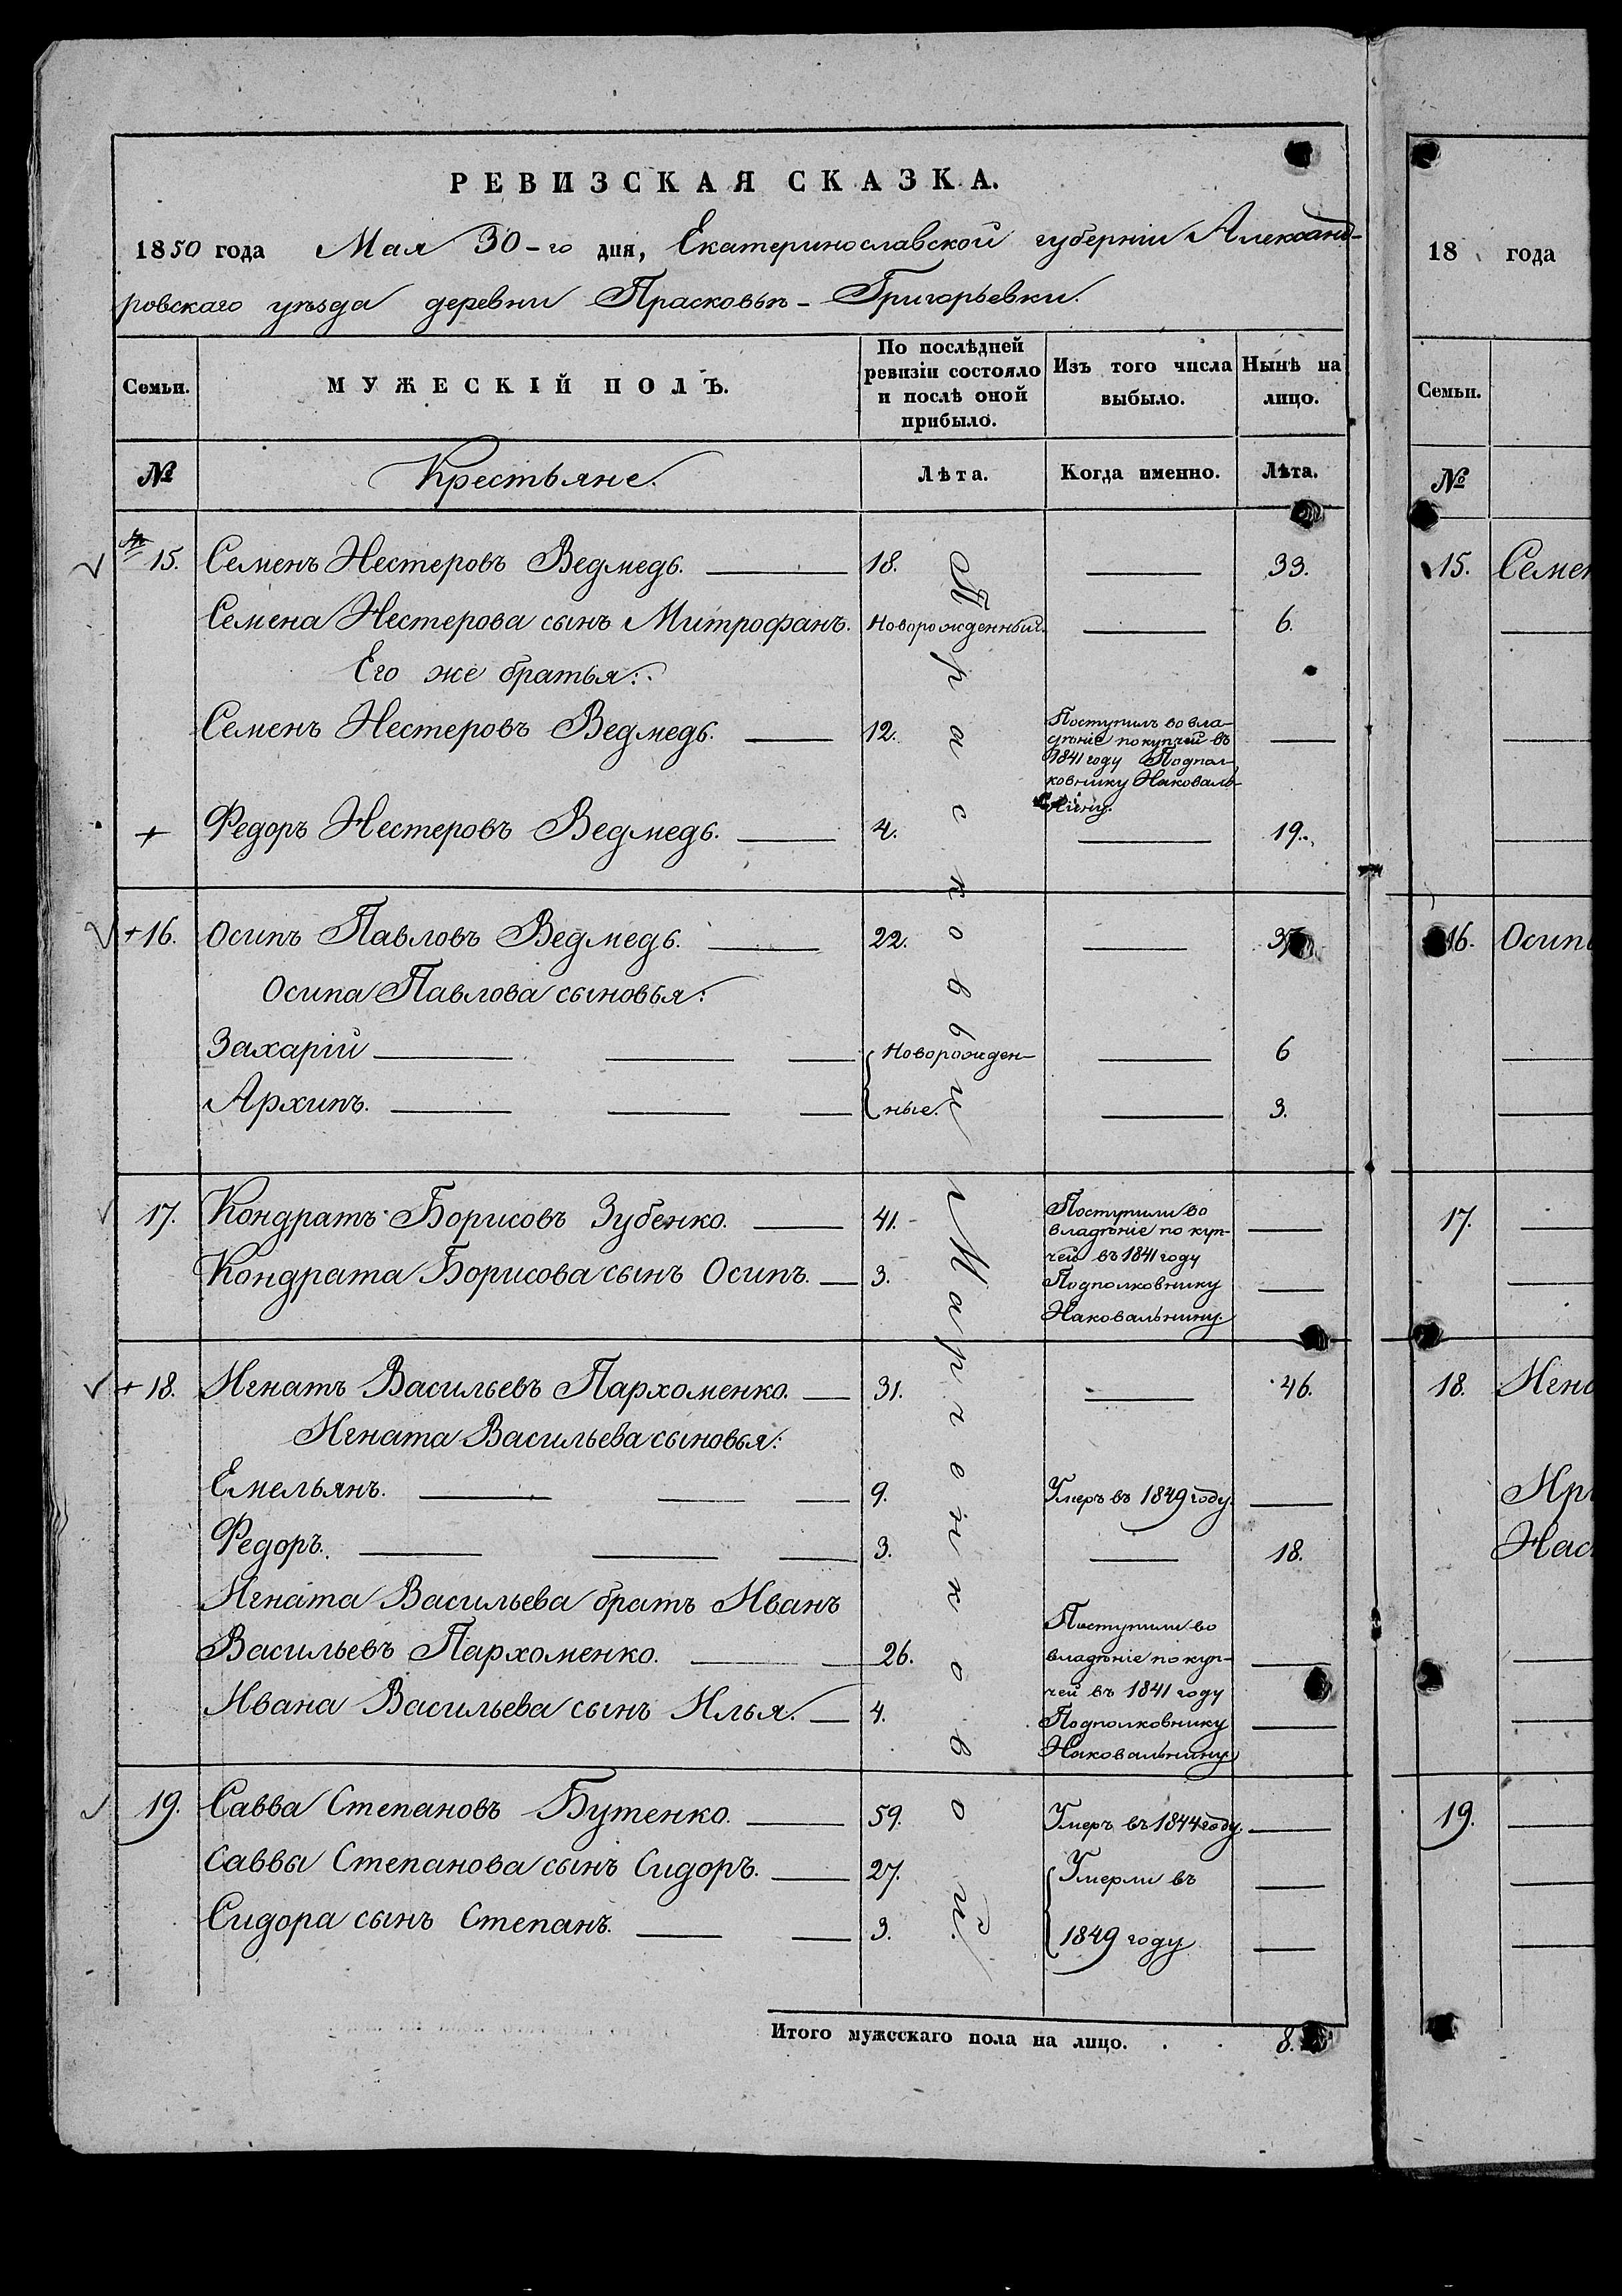 РЕВИЗСКАЯ СКАЗКА.
1850 года Мая 30-го дня, Екатеринославской губерніи Александ-
ровскаго уѣзда деревни Прасковьѣ-Григорьевки.
Семьи. МУЖЕСКІЙ ПОЛЪ. По послѣдней ревизіи состояло и послѣ оной прибыло. Изъ того числа выбыло. Нынѣ на лицо.
№ Крестьяне. Лѣта. Когда именно. Лѣта.
15. Семенъ Нестеровъ Ведмедь. 18. 33.
Семена Нестерова сынъ Митрофанъ. Новорожденный. 6.
Его же братья:
Семенъ Нестеровъ Ведмедь. 12. Поступилъ во вла-
дѣніе по купчей въ
1841 году Подпол-
ковнику Наковаль-
нину.
Федоръ Нестеровъ Ведмедь. 4. 19.
+16. Осипъ Павловъ Ведмедь. 22.
Осипа Павлова сыновья:
Захарій Новорожден- 6
Архипъ. ные. 3.
17. Кондратъ Борисовъ Зубенко. 41. Поступили во
владѣніе по куп-
чей въ 1841 году
Кондрата Борисова сынъ Осипъ. 3. Подполковнику
Наковальнину.
+18. Игнатъ Васильевъ Пархоменко. 31. 46.
Игната Васильева сыновья:
Емельянъ. 9. Умеръ въ 1849 году.
Федоръ. 3. 18.
Игната Васильева братъ Иванъ
Васильевъ Пархоменко. 26. Поступили во
владѣніе по куп-
чей въ 1841 году
Ивана Васильева сынъ Илья. 4. Подполковнику
Наковальнину.
19. Савва Степановъ Бутенко. 59. Умеръ въ 1844 году.
Саввы Степанова сынъ Сидоръ. 27. Умерли въ
Сидора сынъ Степанъ. 3. 1849 году
Прасковьи Марченковой.
Итого мужескаго пола на лицо. 8.
18 года
Семьи.
№
15. Семен
16. Осипа
17.
18. Игна
Ири
Нас
19.